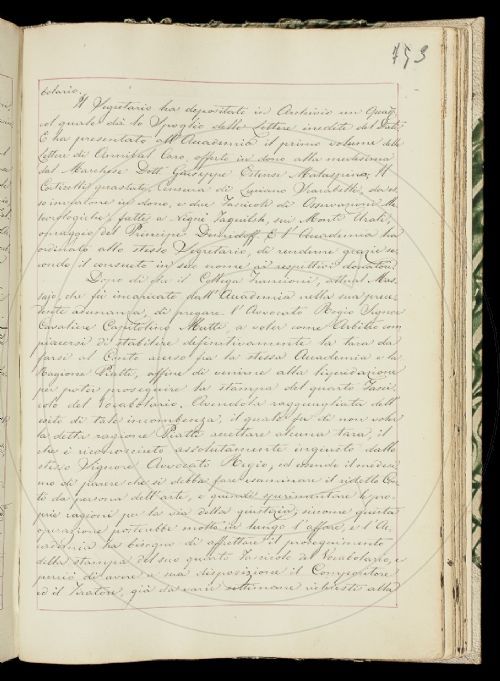 753
bolario.
Il Segretario ha depositato in Archivio un Quad.
col quale dà lo Spoglio delle Lettere inedite del Sal
E ha presentato all'Accademia il primo volume delle
Lettere di Annibal Caro, offerto in dono alla medesima
dal Marchese Dott. Giuseppe Estensi Malaspina, Il
guastato, Censura di Luciano Scarabelli, da es
so in dono, e due Fascicoli di Osservazioni Me
teorologiche, fatte a Nigni Taguilsk, sui Monti Urali,
omaggio del Principe Demidoff. E l'Accademia ha
ordinato allo stesso Segretario, di renderne grazie se
condo il consueto in suo nome ai respettivi donatori.
Dopo di che il Collega Trancioni, attual Mas
sajo, che fù incaricato dall'Accademia nella sua prece
dente adunanza, di pregare l'Avvocato Regio Signor
Cavaliere Capitolino Mutti, a voler come Arbitro com
piacersi di stabilire definitivamente la tara da
farsi al Conto acceso fra la stessa Accademia e la
Ragione Piatti, affine di venirne alla liquidazione
per poter proseguire la stampa del quarto Fasci
colo del Vocabolario, Avendola ragguagliata dell'
esito di tale incombenza, il quale fu di non voler
la detta ragione Piatti accettare alcuna tara, il
che è riconosciuto assolutamente ingiusto dallo
stesso Signore Avvocato Regio, ed essendo il medesi
mo di parere che si debba fare esaminare il ridetto Con
to da persona dell'arte, e quindi sperimentare le pro
prie ragioni per la via della giustizia, siccome questa
operazione porterebbe molto in lungo l'affare, e l'Ac
cademia ha bisogno di affrettare il proseguimento
della stampa del suo quarto Fascicolo del Vocabolario, e
perciò di avere a sua disposizione il Compositore
ed il Tiratore, già da varie settimane richiesti alla